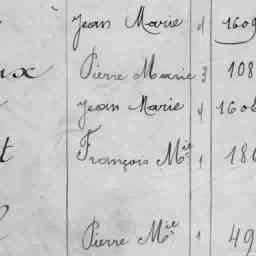 Jean Marie 4 1609
ux Pierre Marie 3 108
Jean Marie 4 1608
t François Mie 1 180
Pierre Mie 1 49